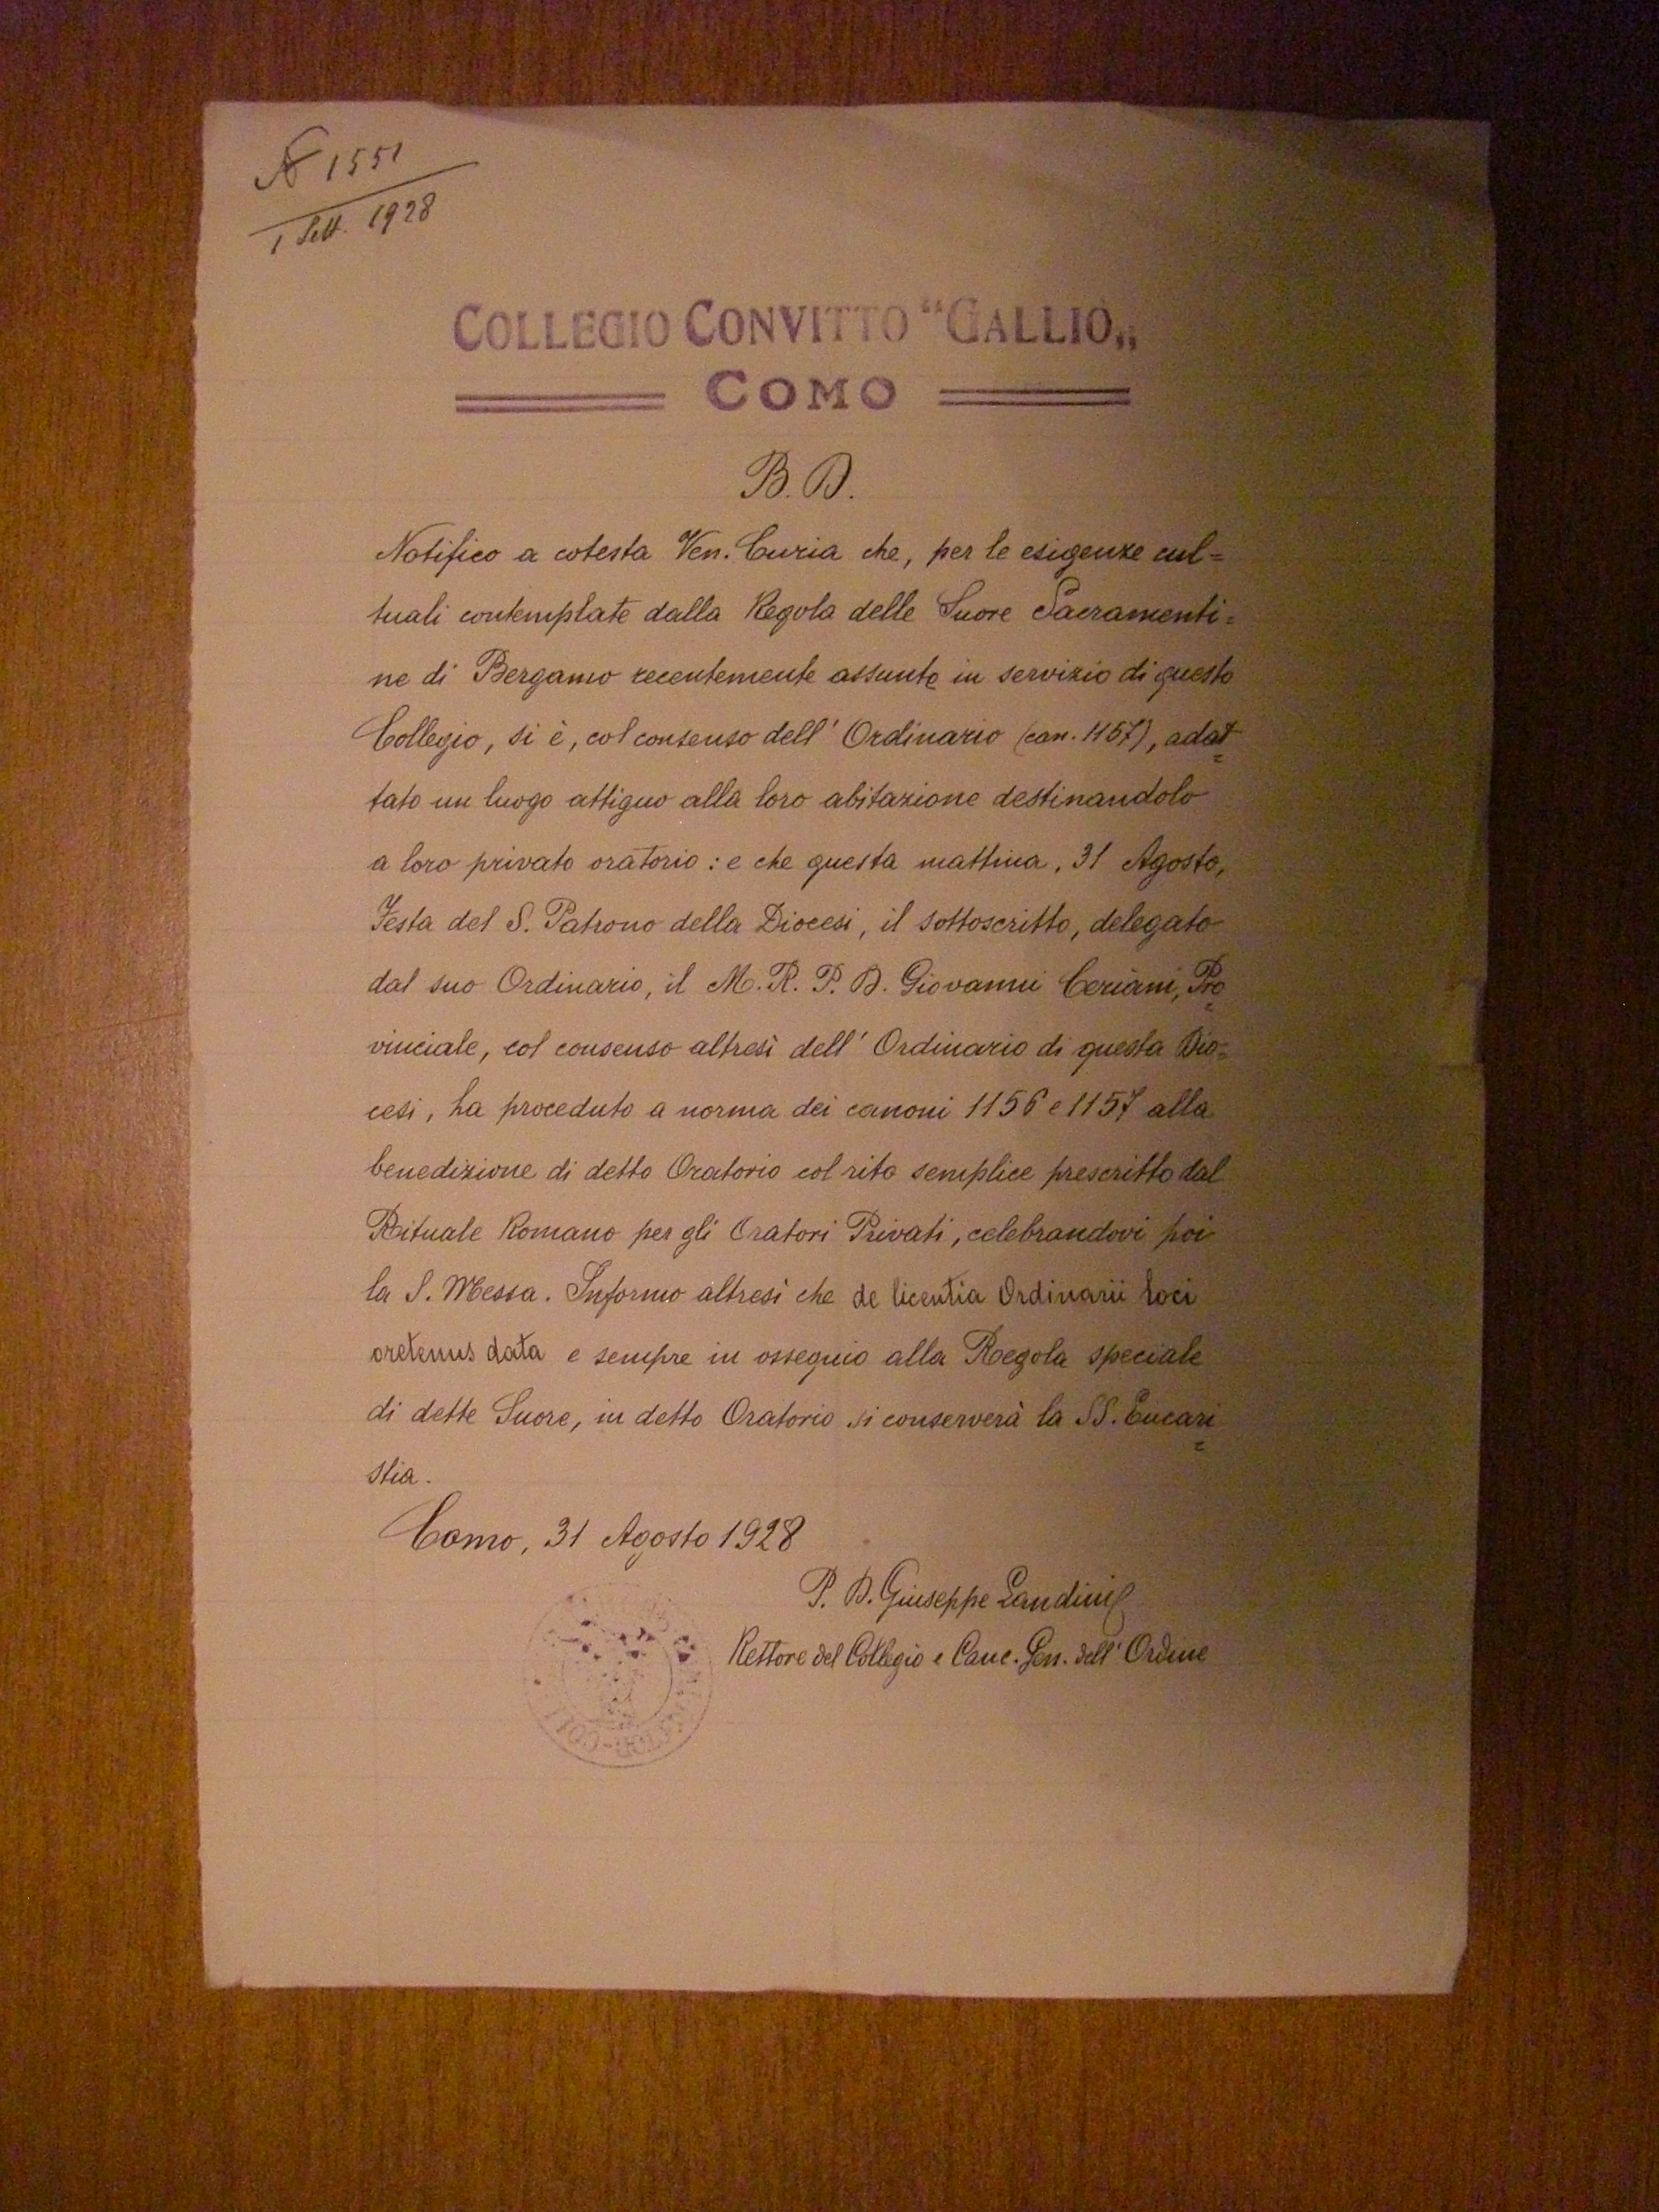 N 1551
1 Sett. 1928
COLLEGIO CONVITTO "GALLIO„
COMO
B. D.
Notifico a cotesta Ven. Curia che, per le esigenze cul=
tuali contemplate dalla Regola delle Suore Sacramenti=
ne di Bergamo recentemente assunte in servizio di questo
Collegio, si è, col consenso dell' Ordinario (can. 1157), adat=
tato un luogo attiguo alla loro abitazione destinandolo
a loro privato oratorio : e che questa mattina, 31 Agosto,
Festa del S. Patrono della Diocesi, il sottoscritto, delegato
dal suo Ordinario, il M. R. P. D. Giovanni Ceriani, Pro=
vinciale, col consenso altresì dell' Ordinario di questa Dio=
cesi, ha proceduto a norma dei canoni 1156 e 1157 alla
benedizione di detto Oratorio col rito semplice prescritto dal
Rituale Romano per gli Oratori Privati, celebrandovi poi
la S. Messa. Informo altresì che de licentia Ordinarii loci
oretenus data e sempre in ossequio alla Regola speciale
di dette Suore, in detto Oratorio si conserverà la SS. Eucari=
stia.
Como, 31 Agosto 1928
P. D. Giuseppe Landini
Rettore del Collegio e Canc. Gen. dell' Ordine